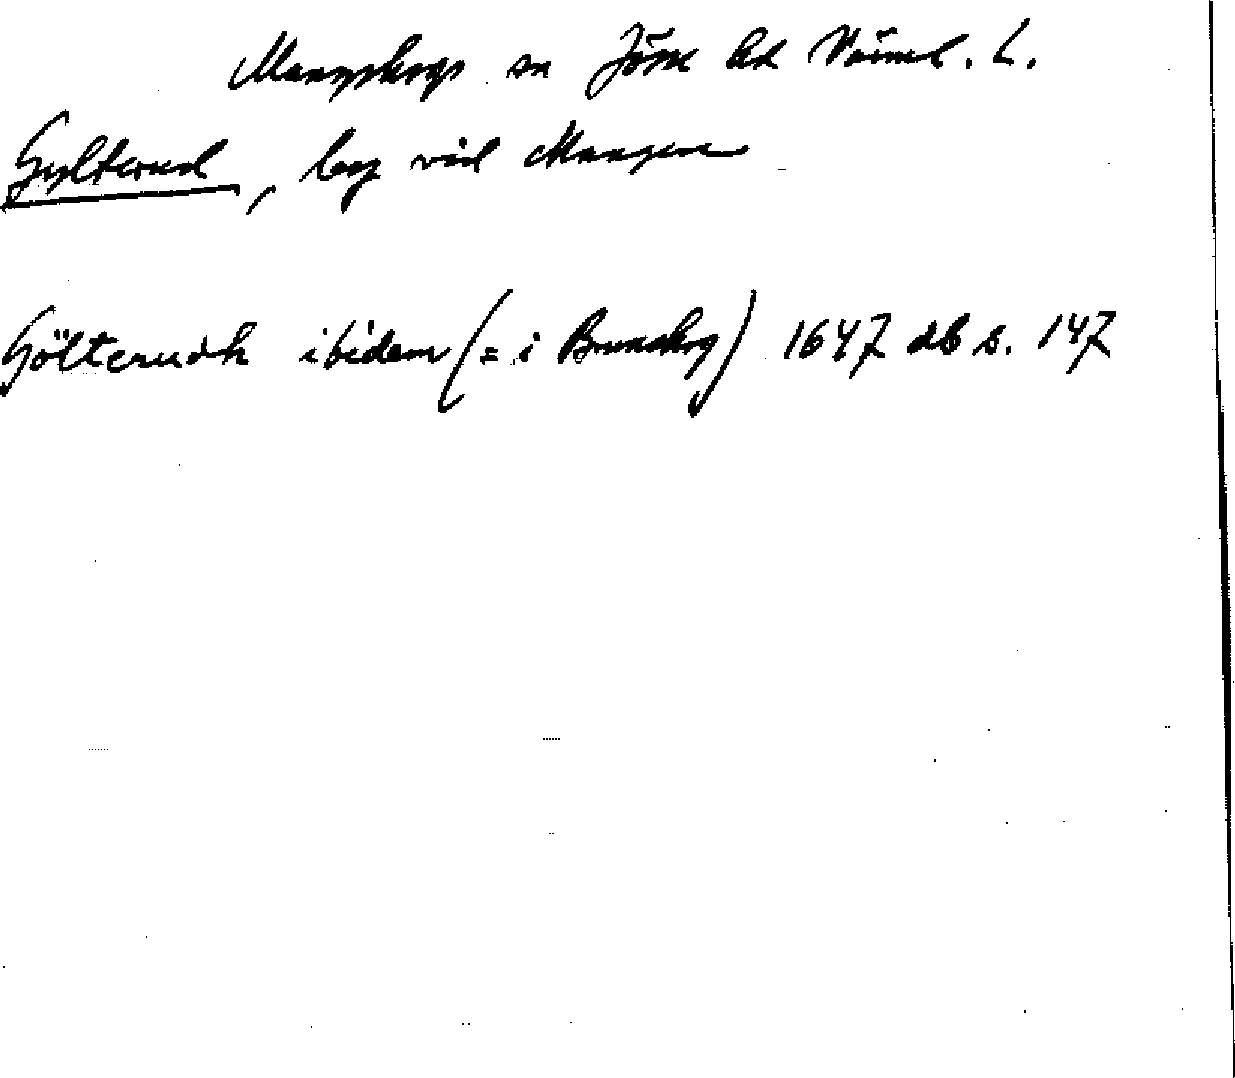 Mangskogs sn Jösse hd Värml. L.
Gylterud, låg vid Mangen
Gölterudh ibidem (= i Brunskog) 1647 db s. 147